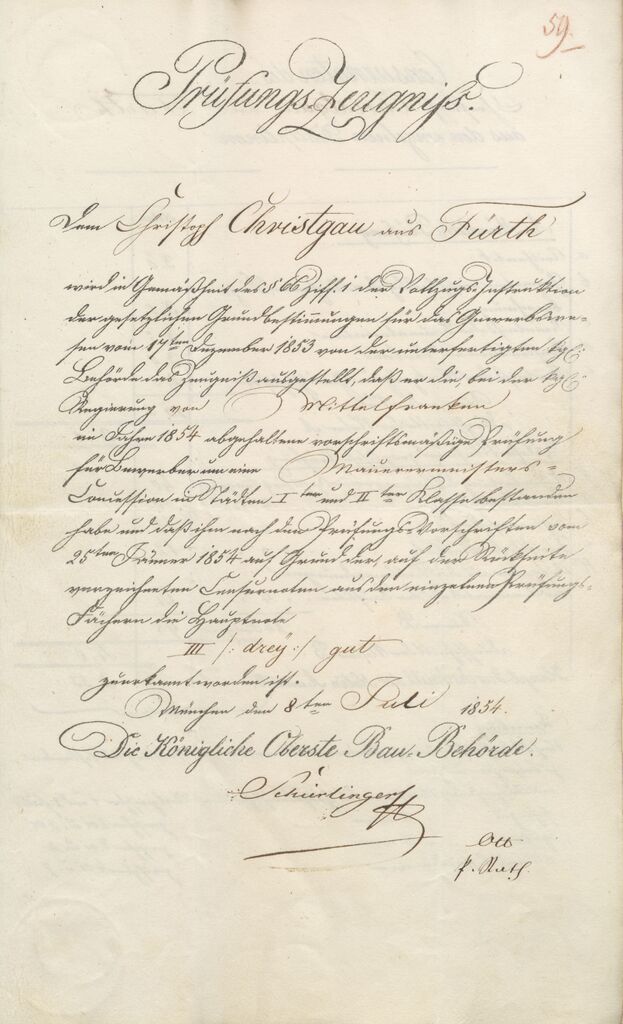 59.
Prüfungs-Zeugniss.
Dem Christoph Christgau aus Fürth
wird in Gemäßheit des § 66 Ziff. 1 der Vollzugs-Instruktion
der gesetzlichen Grundbestimmungen für das Gewerbswe-
sen vom 17ten Dezember 1853 von der unterfertigten kgl.
Behörde das Zeugniß ausgestellt, daß er die, bei der kgl.
Regierung von Mittelfranken
im Jahre 1854 abgehaltene vorschriftsmäßige Prüfung
für Bewerber um eine Mauermeisters-
Concession in Städten Iter und IIter Klasse bestanden
habe und daß ihm nach den Prüfungs-Vorschriften vom
25ten Jänner 1854 auf Grund der, auf der Rückseite
verzeichneten Censurnoten aus den einzelnen Prüfungs-
Fächern die Hauptnote
III /: drey :/ gut
zuerkannt worden ist.
München den 8ten Juli 1854.
Die Königliche Oberste Bau-Behörde.
Ott